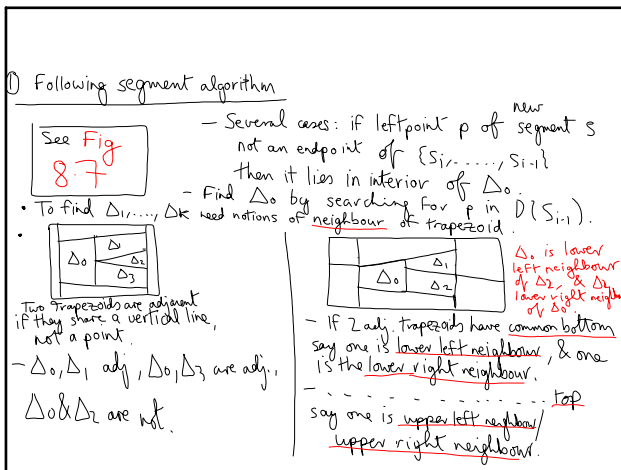 ① Following segment algorithm
See Fig
8.7
- Several cases: if leftpoint p of new segment S
not an endpoint of {S₁,.....,Sᵢ₋₁}
then it lies in interior of Δ₀.
- Find Δ₀ by searching for p in D(Sᵢ₋₁).
• To find Δ₁,...., Δₖ need notions of neighbour of trapezoid.
•
Δ₀
Δ₁
Δ₂
Δ₃
Two trapezoids are adjacent
if they share a vertical line,
not a point.
- Δ₀,Δ₁ adj, Δ₀,Δ₃ are adj.,
Δ₀&Δ₂ are not.
Δ₀
Δ₁
Δ₂
Δ₀ is lower
left neighbour
of Δ₂, & Δ₂
lower right neighb
of Δ₀.
- If 2 adj. trapezoids have common bottom
say one is lower left neighbour, & one
is the lower right neighbour.
- . . . . . . . . . . . . . . top
say one is upper left neighbour/
upper right neighbour.